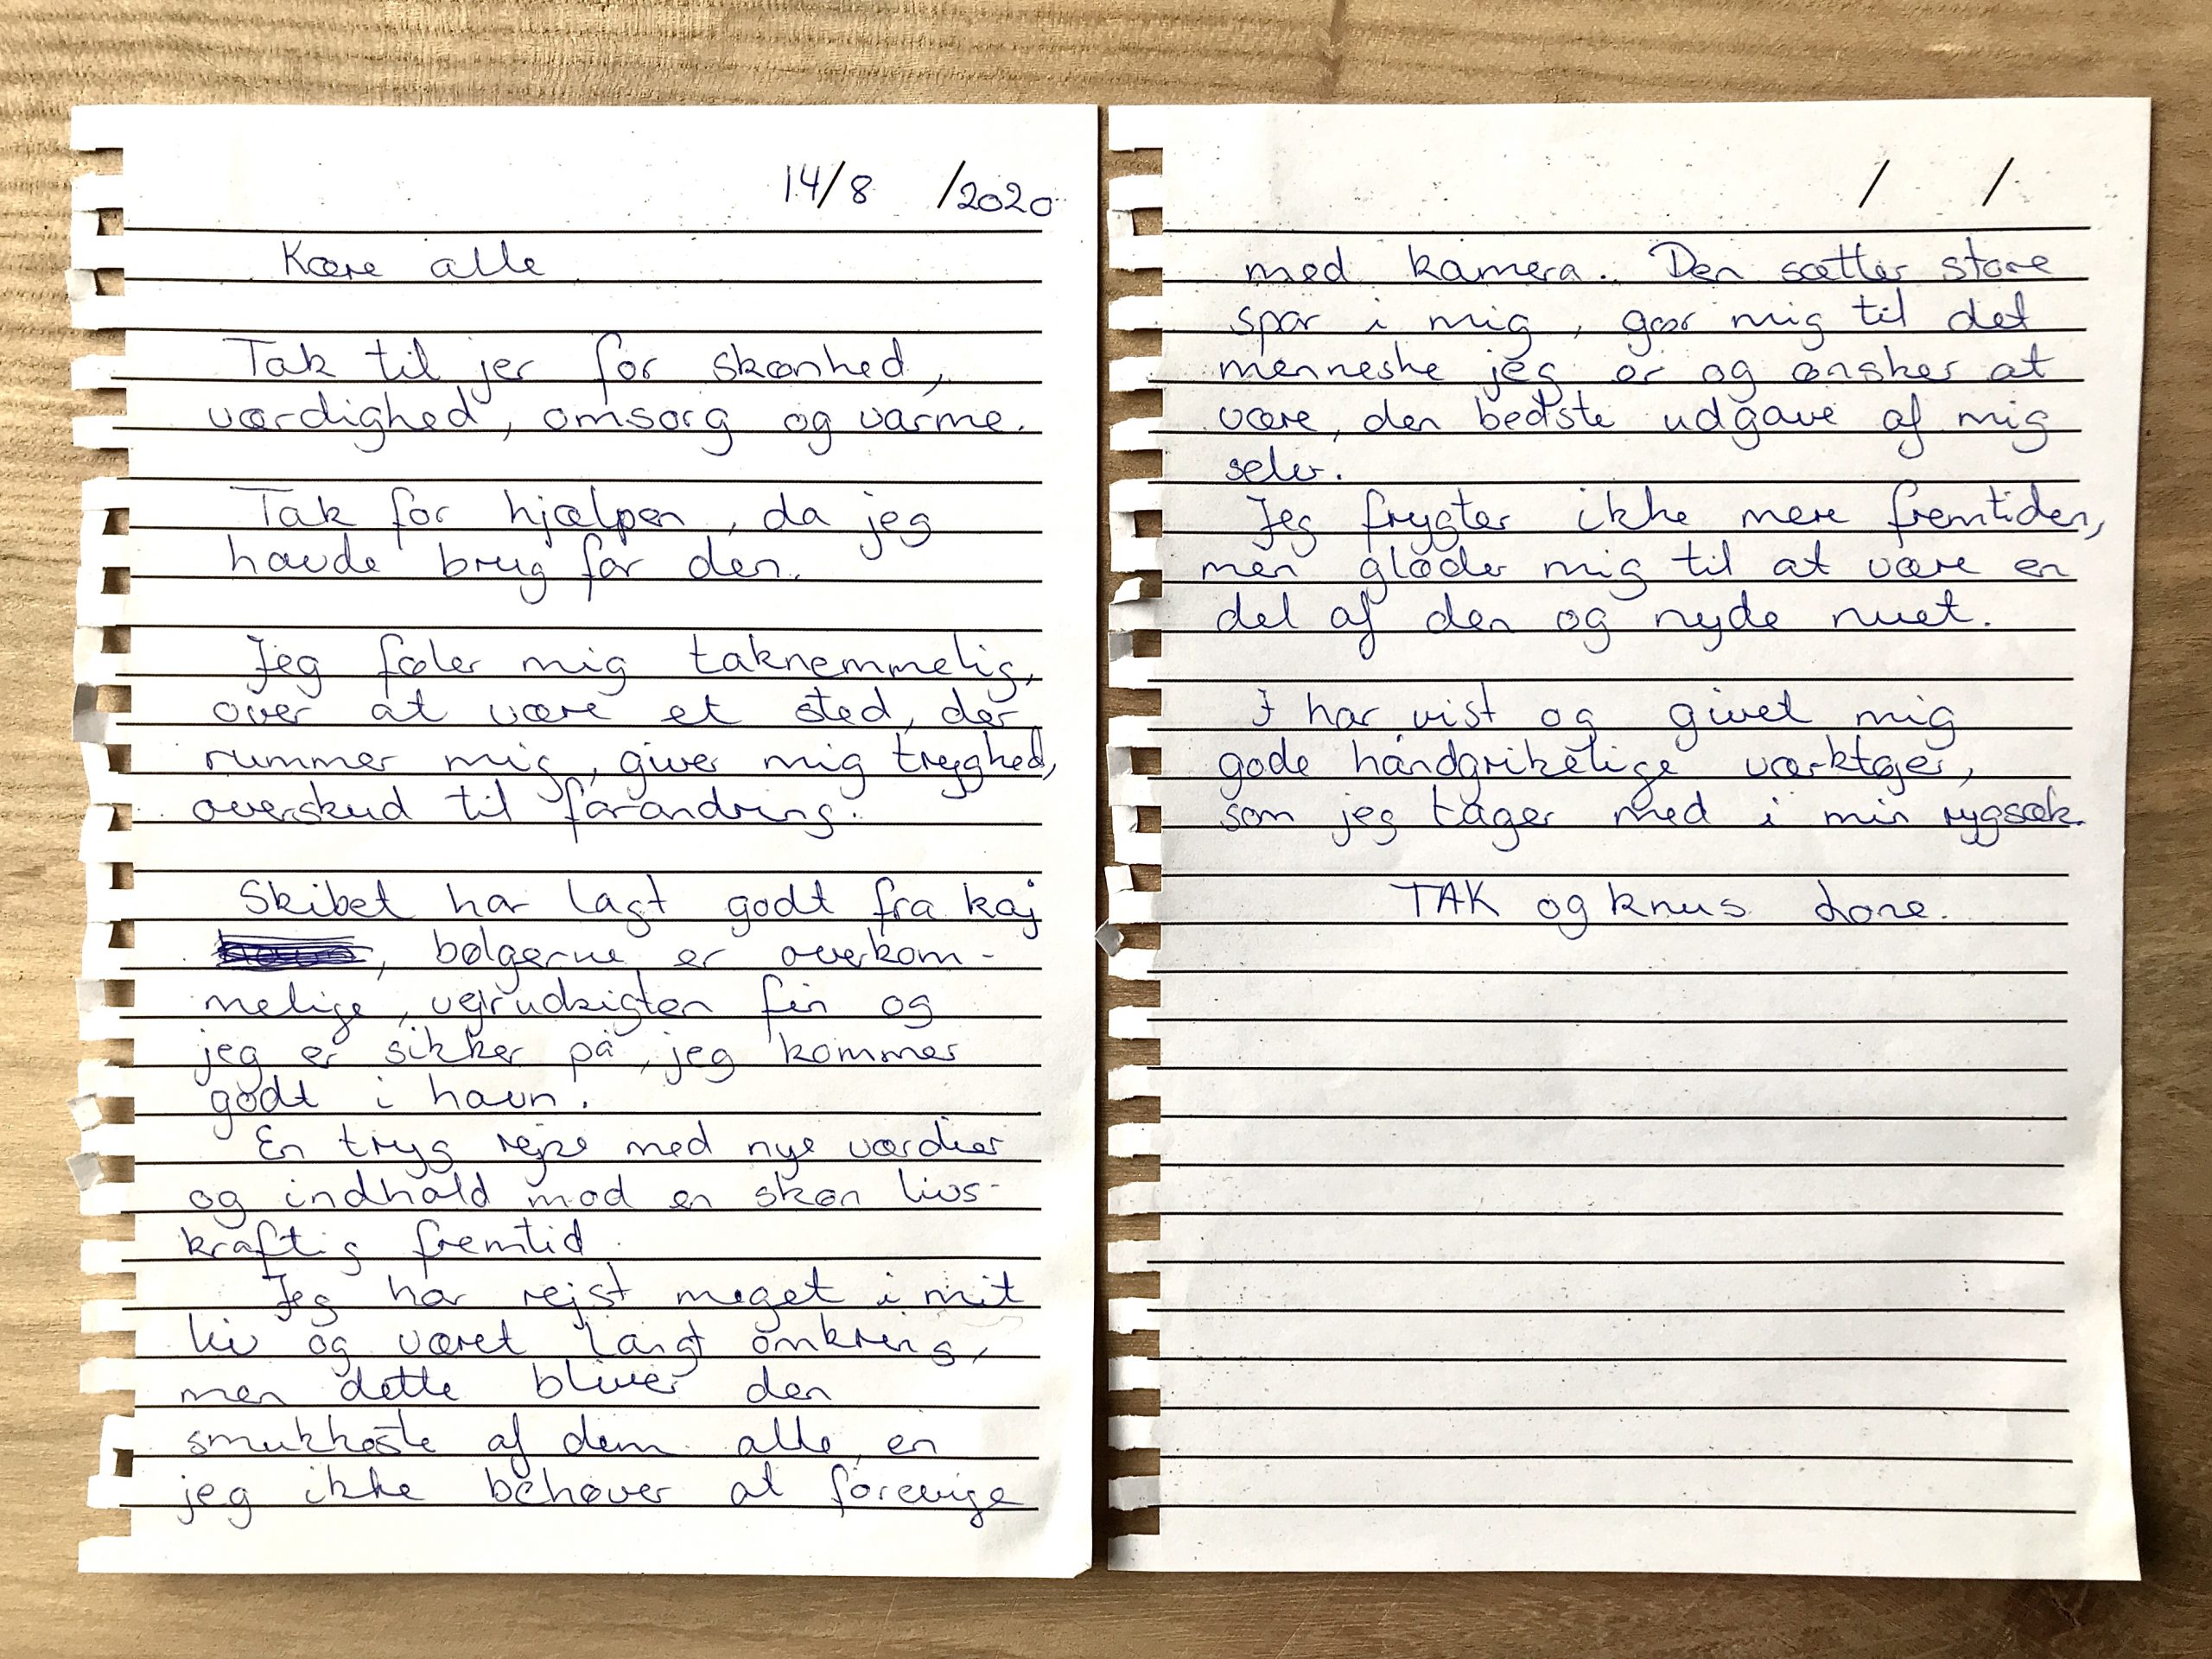 14/8 /2020
Kære alle
Tak til jer for skønhed,
værdighed, omsorg og varme.
Tak for hjælpen, da jeg
havde brug for den.
Jeg føler mig taknemmelig,
over at være et sted, der
rummer mig, giver mig tryghed,
overskud til forandring.
Skibet har lagt godt fra kaj
, bølgerne er overkom-
melige, vejrudsigten fin og
jeg er sikker på, jeg kommer
godt i havn.
En tryg rejse med nye værdier
og indhold mod en skøn livs-
kraftig fremtid.
Jeg har rejst meget i mit
liv og været langt omkring,
men dette bliver den
smukkeste af dem alle, en
jeg ikke behøver at forevige
/ /
med kamera. Den sætter store
spor i mig, gør mig til det
menneske jeg er og ønsker at
være, den bedste udgave af mig
selv.
Jeg frygter ikke mere fremtiden,
men glæder mig til at være en
del af den og nyde nuet.
I har vist og givet mig
gode håndgribelige værktøjer,
som jeg tager med i min rygsæk.
TAK og knus Lone.